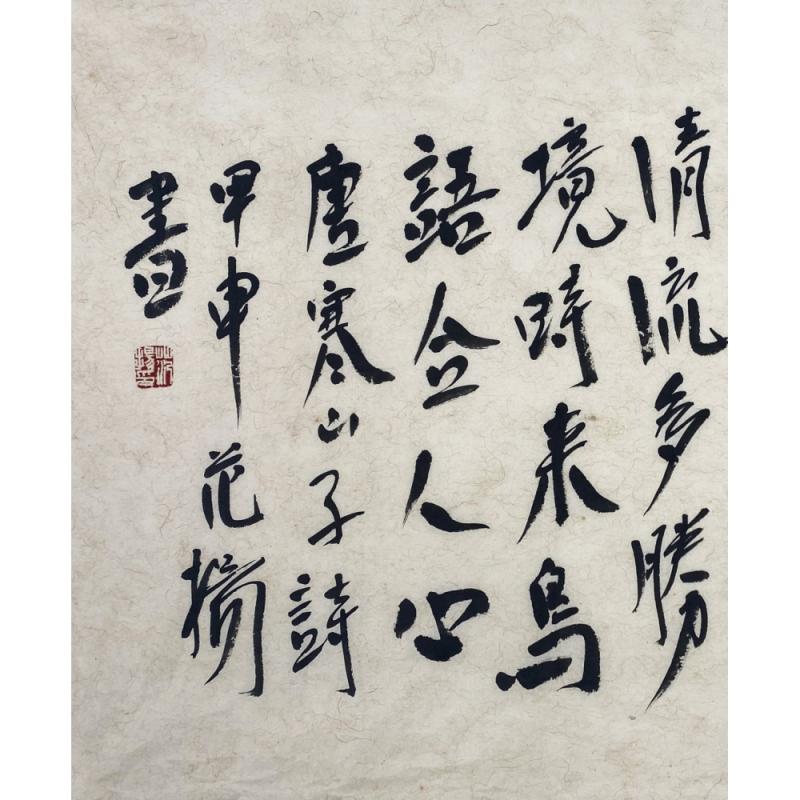 清流多勝
境時来鳥
語合人心
唐寒山子詩
甲申范揚
書